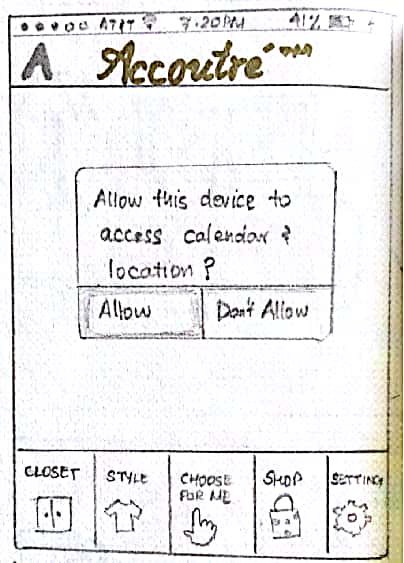 AT&T 7:20PM 41%
A Accoutré
Allow this device to
access calendar &
location?
Allow Don't Allow
CLOSET STYLE CHOOSE FOR ME SHOP SETTING